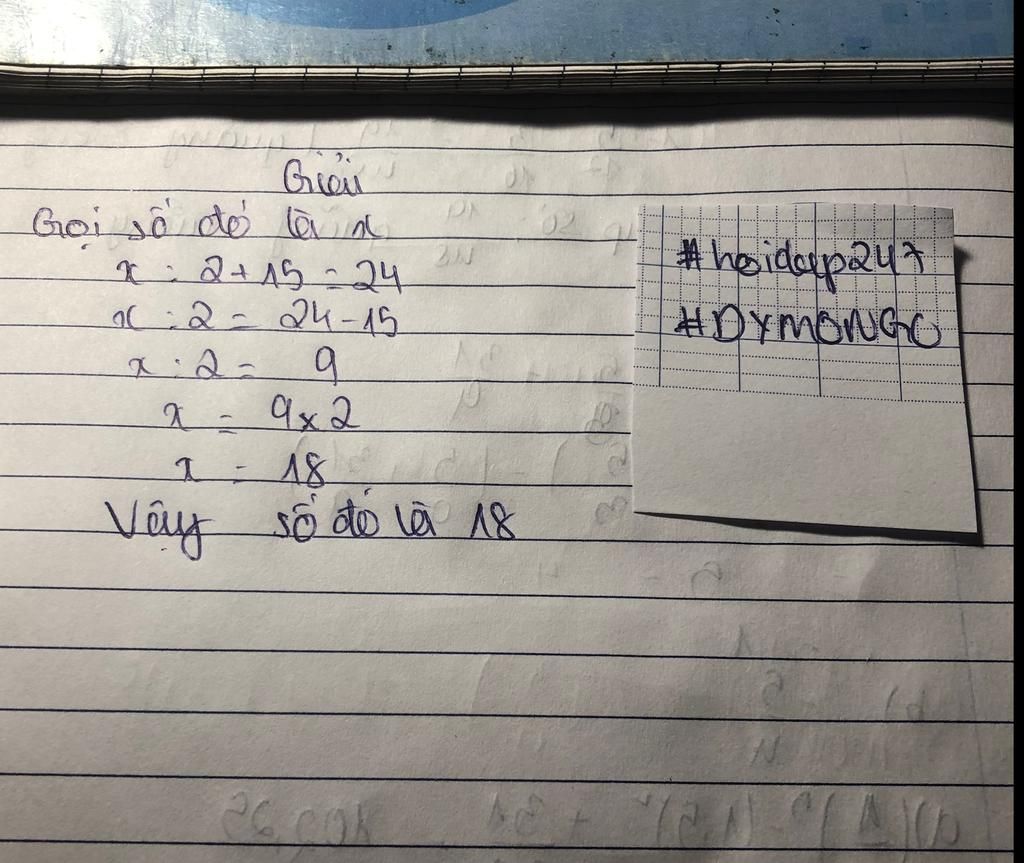 Giải
Gọi số đó là x
x : 2 + 15 = 24
x : 2 = 24 - 15
x : 2 = 9
x = 9 x 2
x = 18
Vậy số đó là 18
#hoidap247
#DYMONGO